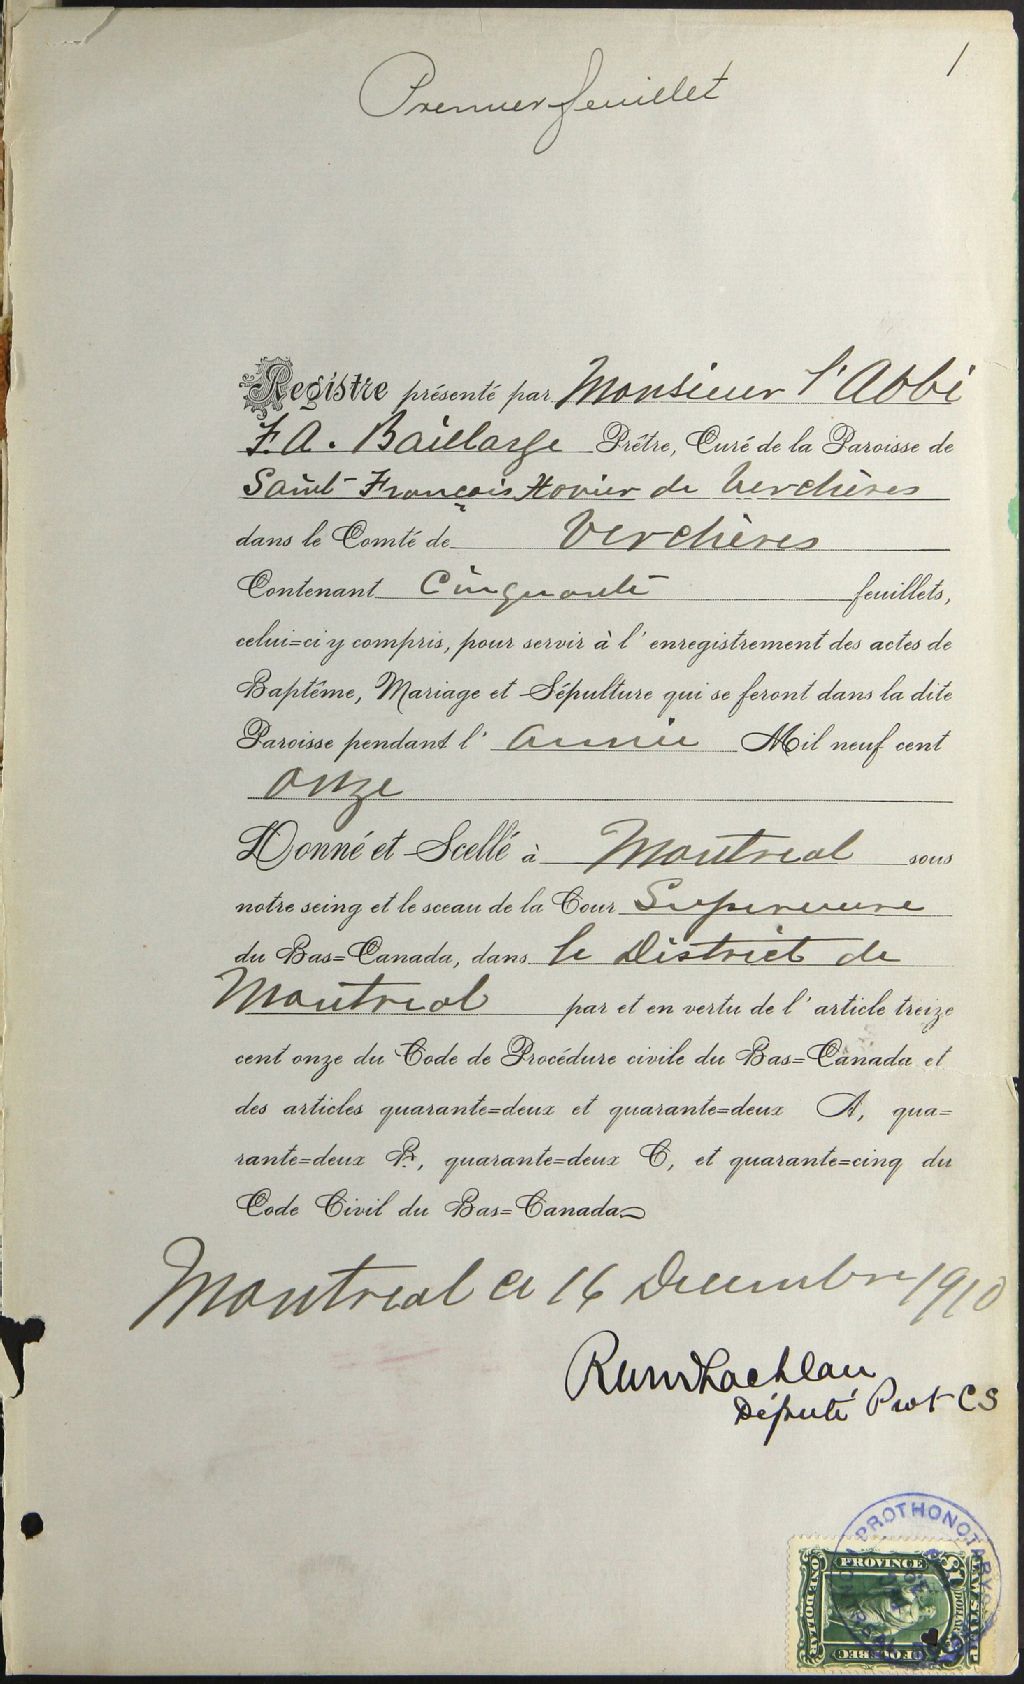 1
Premier feuillet
Registre présenté par Monsieur l'Abbé
F. A. Baillarge Prêtre, Curé de la Paroisse de
Saint-François Xavier de Verchères
dans le Comté de Verchères
Contenant Cinquante feuillets,
celui=ci y compris, pour servir à l'enregistrement des actes de
Baptême, Mariage et Sépulture qui se feront dans la dite
Paroisse pendant l'année Mil neuf cent
onze
Donné et Scellé à Montreal sous
notre seing et le sceau de la Cour Superieure
du Bas=Canada, dans le District de
Montreal par et en vertu de l'article treize
cent onze du Code de Procédure civile du Bas=Canada et
des articles quarante=deux et quarante=deux A, qua=
rante=deux B, quarante=deux C, et quarante=cinq du
Code Civil du Bas=Canada
Montreal ce 16 Decembre 1910
Député Prot C S
PROTHONOTARY
PROVINCE
OF QUEBEC
ONE DOLLAR
LAW STAMP
$1
DOLLAR